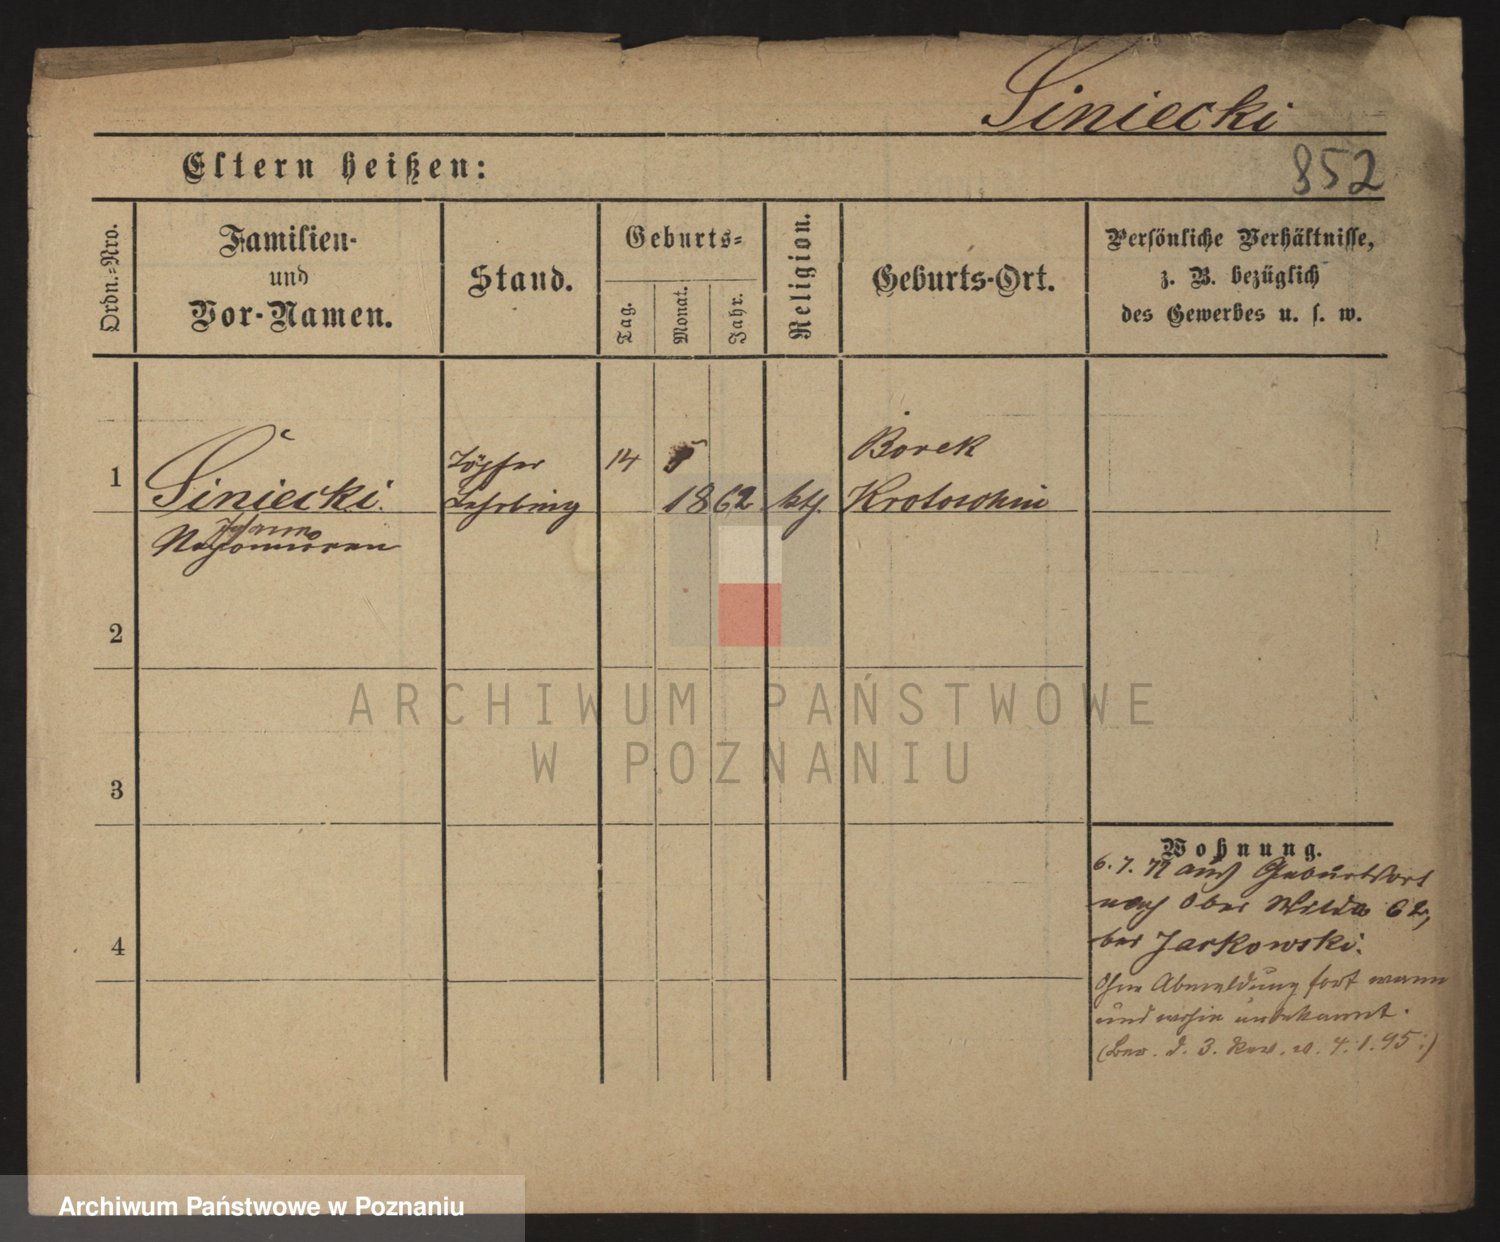 Siniecki
852
Eltern heißen:
Ordn.=Nro.
Familien-
und
Vor-Namen.
Stand.
Geburts=
Tag.
Monat.
Jahr.
Religion.
Geburts-Ort.
Persönliche Verhältnisse,
z. B. bezüglich
des Gewerbes u. s. w.
1
Siniecki.
Johann
Töpfer
Lehrling
14 5
1862
kth.
Borek
Krotoschin
2
3
4
Wohnung.
6. 7. 79 aus Geburtsort
nach Ober Wilda 62,
bei Jarkowski.
Ohne Abmeldung fort wann
und wohin unbekannt.
(Ber. d. 3. Rev. v. 4. 1. 95.)
ARCHIWUM PAŃSTWOWE
W POZNANIU
Archiwum Państwowe w Poznaniu